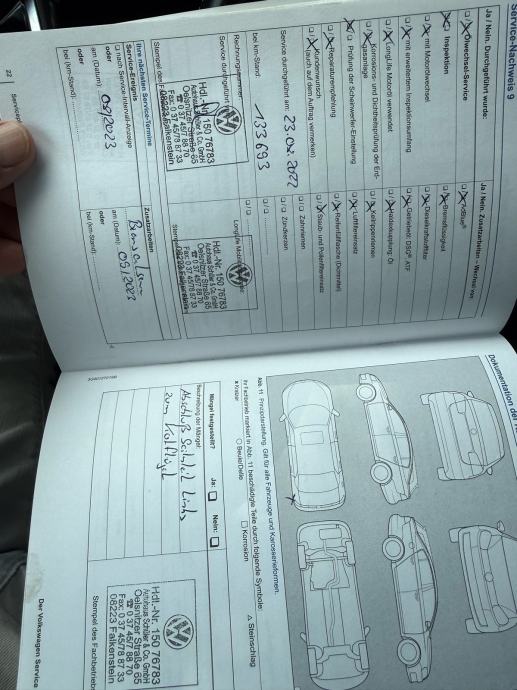 Service-Nachweis 9
Ja / Nein. Durchgeführt wurde:
Ölwechsel-Service
Inspektion
mit Motorölwechsel
mit erweitertem Inspektionsumfang
LongLife Motoröl verwendet
Korrosions- und Dichtheitsprüfung der Erd-
gasanlage
Prüfung der Scheinwerfer-Einstellung
Reparaturempfehlung
Kundenwunsch
(auch auf dem Auftrag vermerken)
Service durchgeführt am: 23.02.2022
bei km-Stand: 133693
Hdl.-Nr. 150 76783
Autohaus Schüler & Co. GmbH
Oelsnitzer Straße 65
☎ 0 37 45/7 88 70
Fax: 0 37 45/78 87 33
08223 Falkenstein
Ihre nächsten Service-Termine
Service-Ereignis
nach Service-Intervall-Anzeige
oder
am (Datum): 03/2023
oder
bei (km-Stand):
22
Ja / Nein. Zusatzarbeiten - Wechsel von
AdBlue®
Bremsflüssigkeit
Dieselkraftstofffilter
Getriebeöl: DSG® ATF
Keilrippenriemen
Luftfiltereinsatz
Staub- und Pollenfiltereinsatz
Zahnriemen
Zündkerzen
Hdl.-Nr. 150 76783
Autohaus Schüler & Co. GmbH
Oelsnitzer Straße 65
☎ 0 37 45/7 88 70
Fax: 0 37 45/78 87 33
08223 Falkenstein
Zusatzarbeiten
am (Datum): 05/2023
oder
bei (km-Stand):
Abb. 11 Prinzipdarstellung. Gilt für alle Fahrzeuge und Karosserieformen.
Ihr Fachbetrieb markiert in Abb. 11 beschädigte Teile durch folgende Symbole:
x Kratzer
○ Beule/Delle
□ Korrosion
△ Steinschlag
Mängel festgestellt?
Ja: □
Nein: □
Beschreibung der Mängel:
Hdl.-Nr. 150 76783
Autohaus Schüler & Co. GmbH
Oelsnitzer Straße 65
☎ 0 37 45/7 88 70
Fax: 0 37 45/78 87 33
08223 Falkenstein
Stempel des Fachbetriebs
Der Volkswagen Service